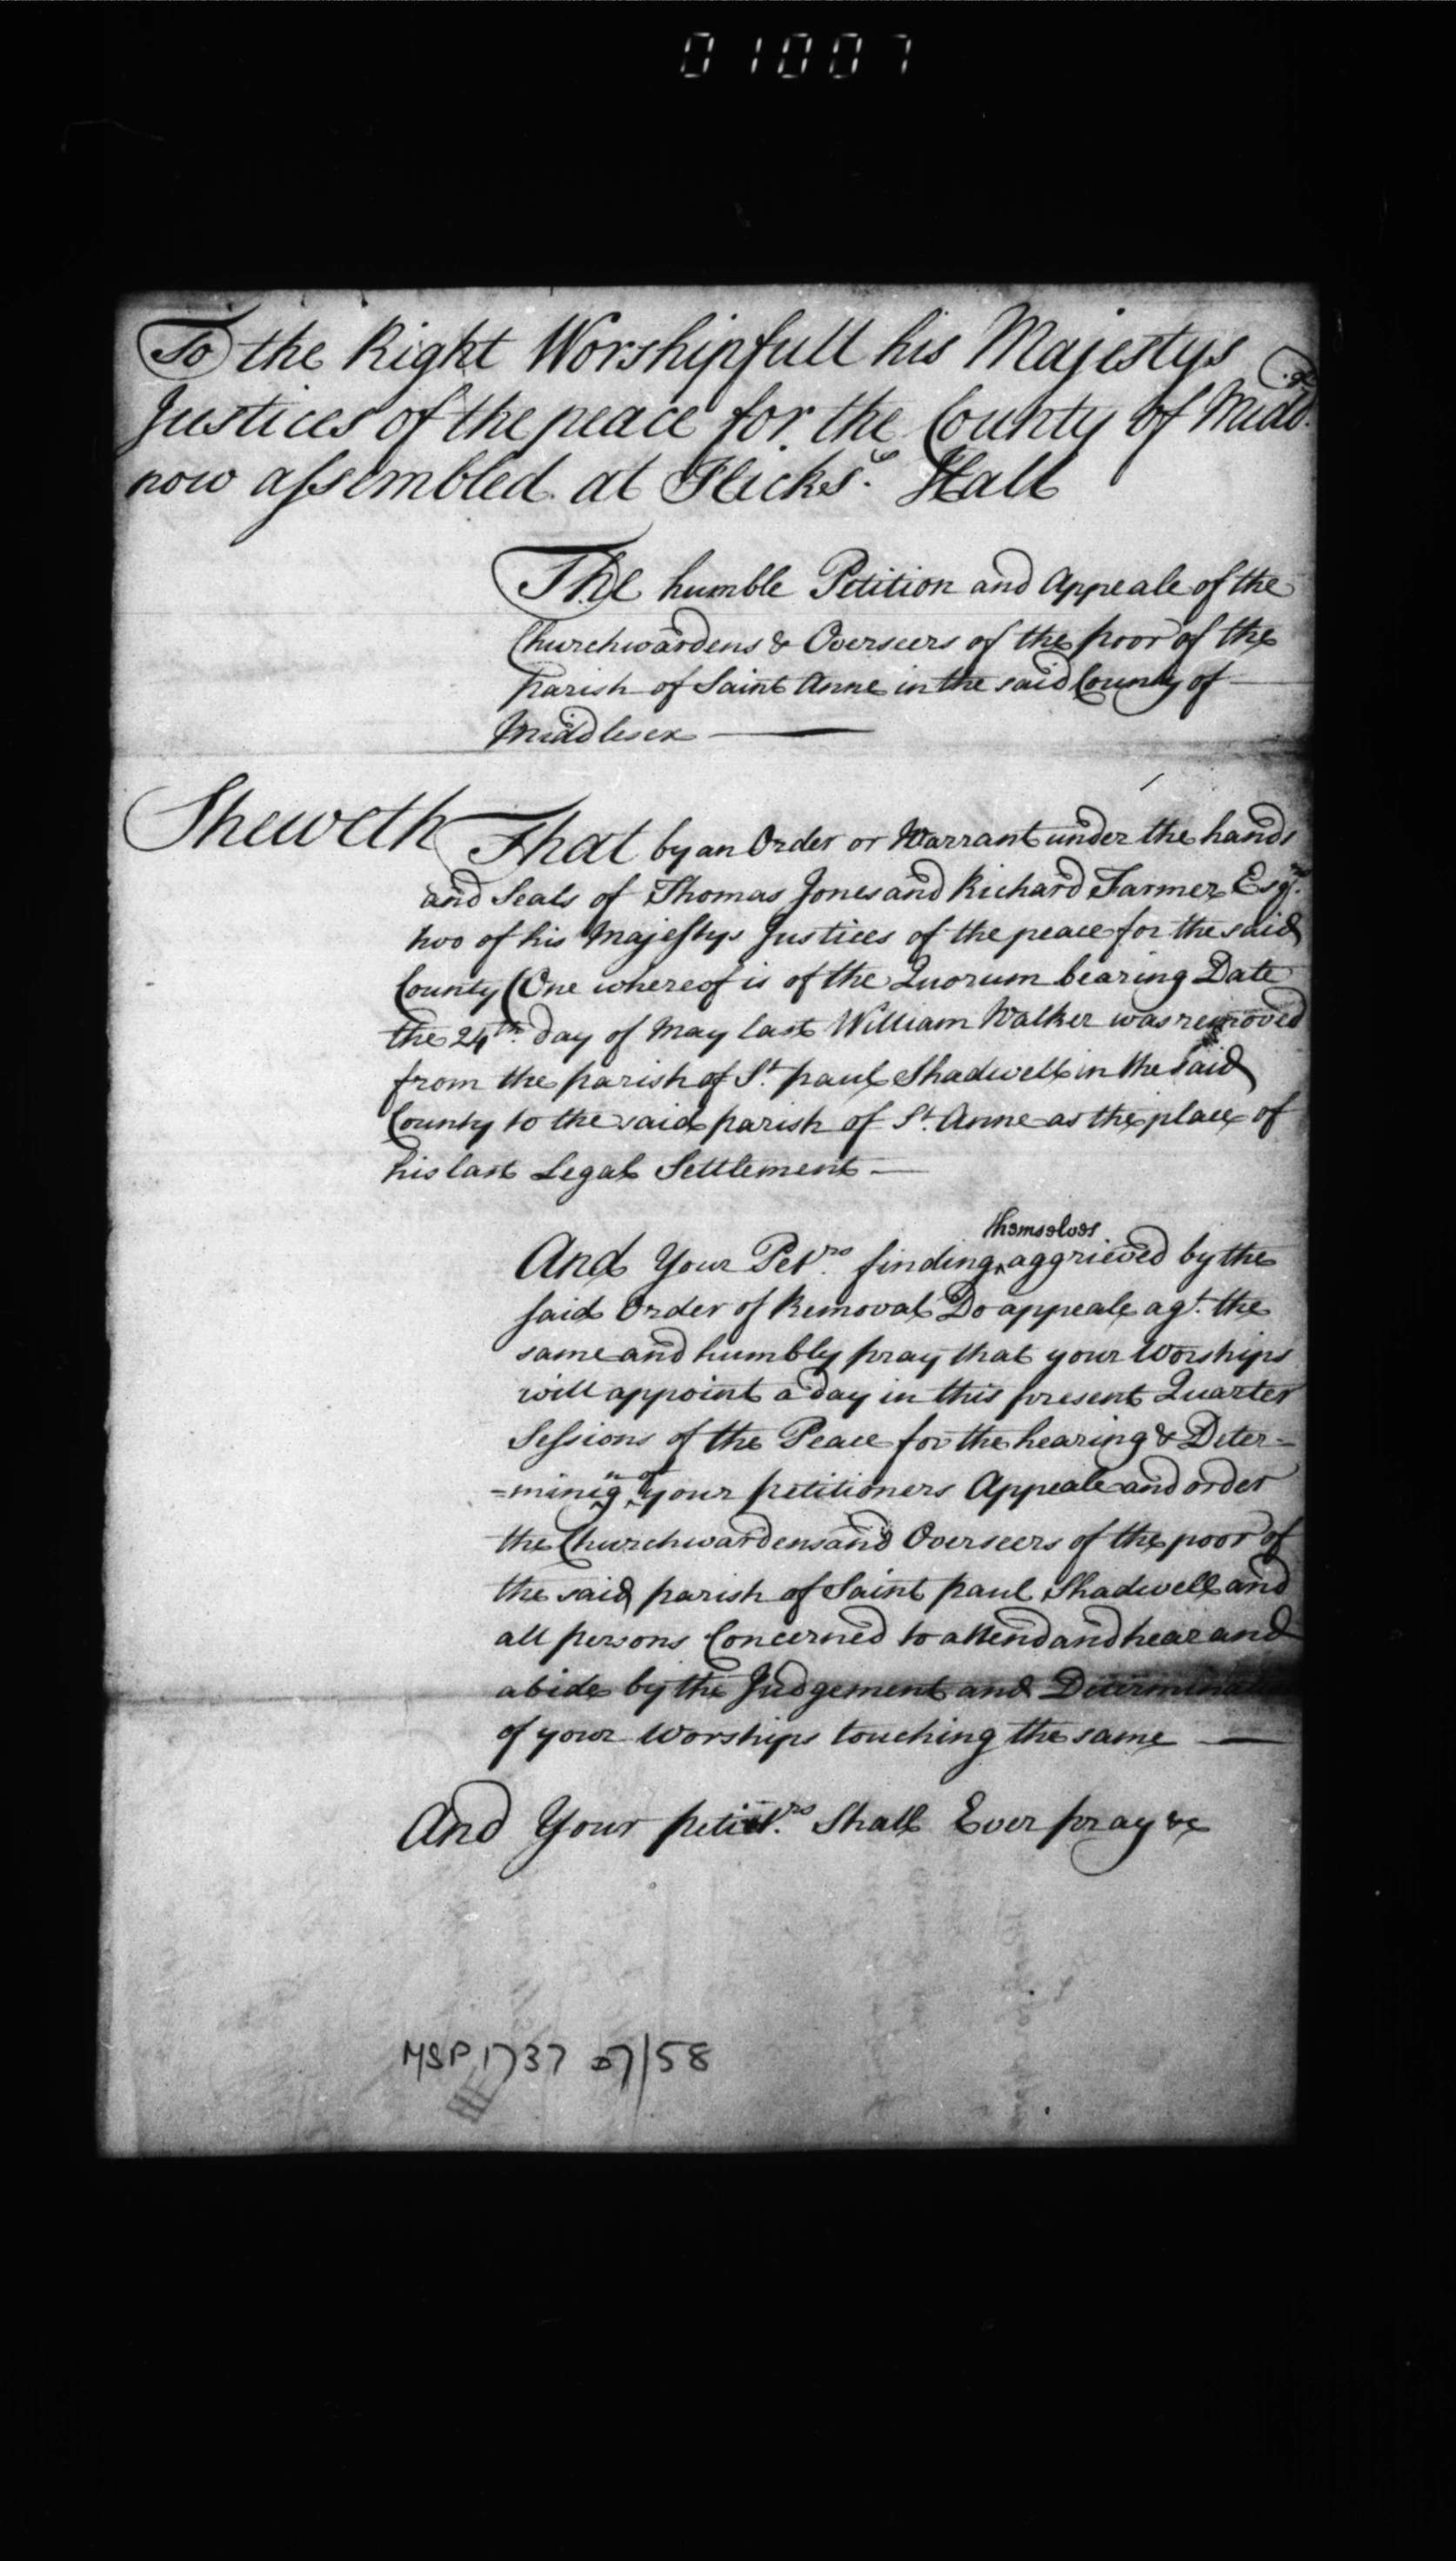 01007
To the Right Worshipfull his Majestys
Justices of the peace for the County of Midd.
now assembled at Hicks's Hall
The humble Petition and Appeale of the
Churchwardens & Overseers of the poor of the
Parish of Saint Anne in the said County of
Middlesex
Sheweth That by an Order or Warrant under the hands
and Seals of Thomas Jones and Richard Farmer Esqrs.
two of his Majestys Justices of the peace for the said
County (One whereof is of the Quorum bearing Date
the 24th. day of May last William Walker was removed
from the parish of St. paul Shadwell in the said
County to the said parish of St. Anne as the place of
his last Legal Settlement
themselves
And Your Petrs. finding aggrieved by the
said Order of Removal Do appeale agt. the
same and humbly pray that your Worships
will appoint a day in this present Quarter
Sessions of the Peace for the hearing & Deter=
=mining of your petitioners Appeale and order
the Churchwardens and Overseers of the poor of
the said parish of Saint paul Shadwell and
all persons Concerned to attend and hear and
abide by the Judgement and
of your Worships touching the same
And Your Shall Ever pray &c
MSP 1737 07/58